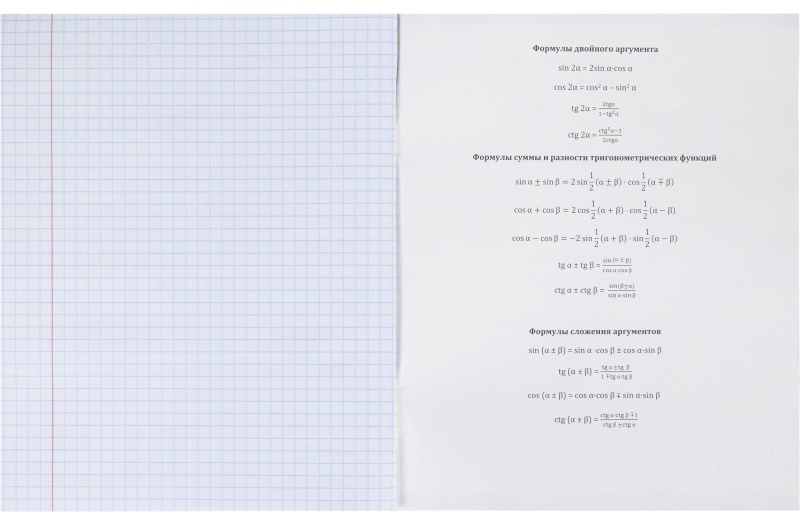 Формулы двойного аргумента
sin 2α = 2sin α·cos α
cos 2α = cos² α − sin² α
tg 2α = 2tgα / 1−tg²α
ctg 2α = ctg²α−1 / 2ctgα
Формулы суммы и разности тригонометрических функций
sin α ± sin β = 2 sin 1/2 (α ± β) · cos 1/2 (α ∓ β)
cos α + cos β = 2 cos 1/2 (α + β) · cos 1/2 (α − β)
cos α − cos β = −2 sin 1/2 (α + β) · sin 1/2 (α − β)
tg α ± tg β = sin (α ± β) / cos α·cos β
ctg α ± ctg β = sin(β±α) / sin α·sin β
Формулы сложения аргументов
sin (α ± β) = sin α ·cos β ± cos α·sin β
tg (α ± β) = tg α ±tg β / 1 ∓tg α·tg β
cos (α ± β) = cos α·cos β ∓ sin α·sin β
ctg (α ± β) = ctg α·ctg β ∓1 / ctg β ±ctg α